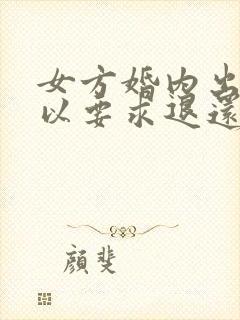 女方婚内出
以要求退还
颜斐